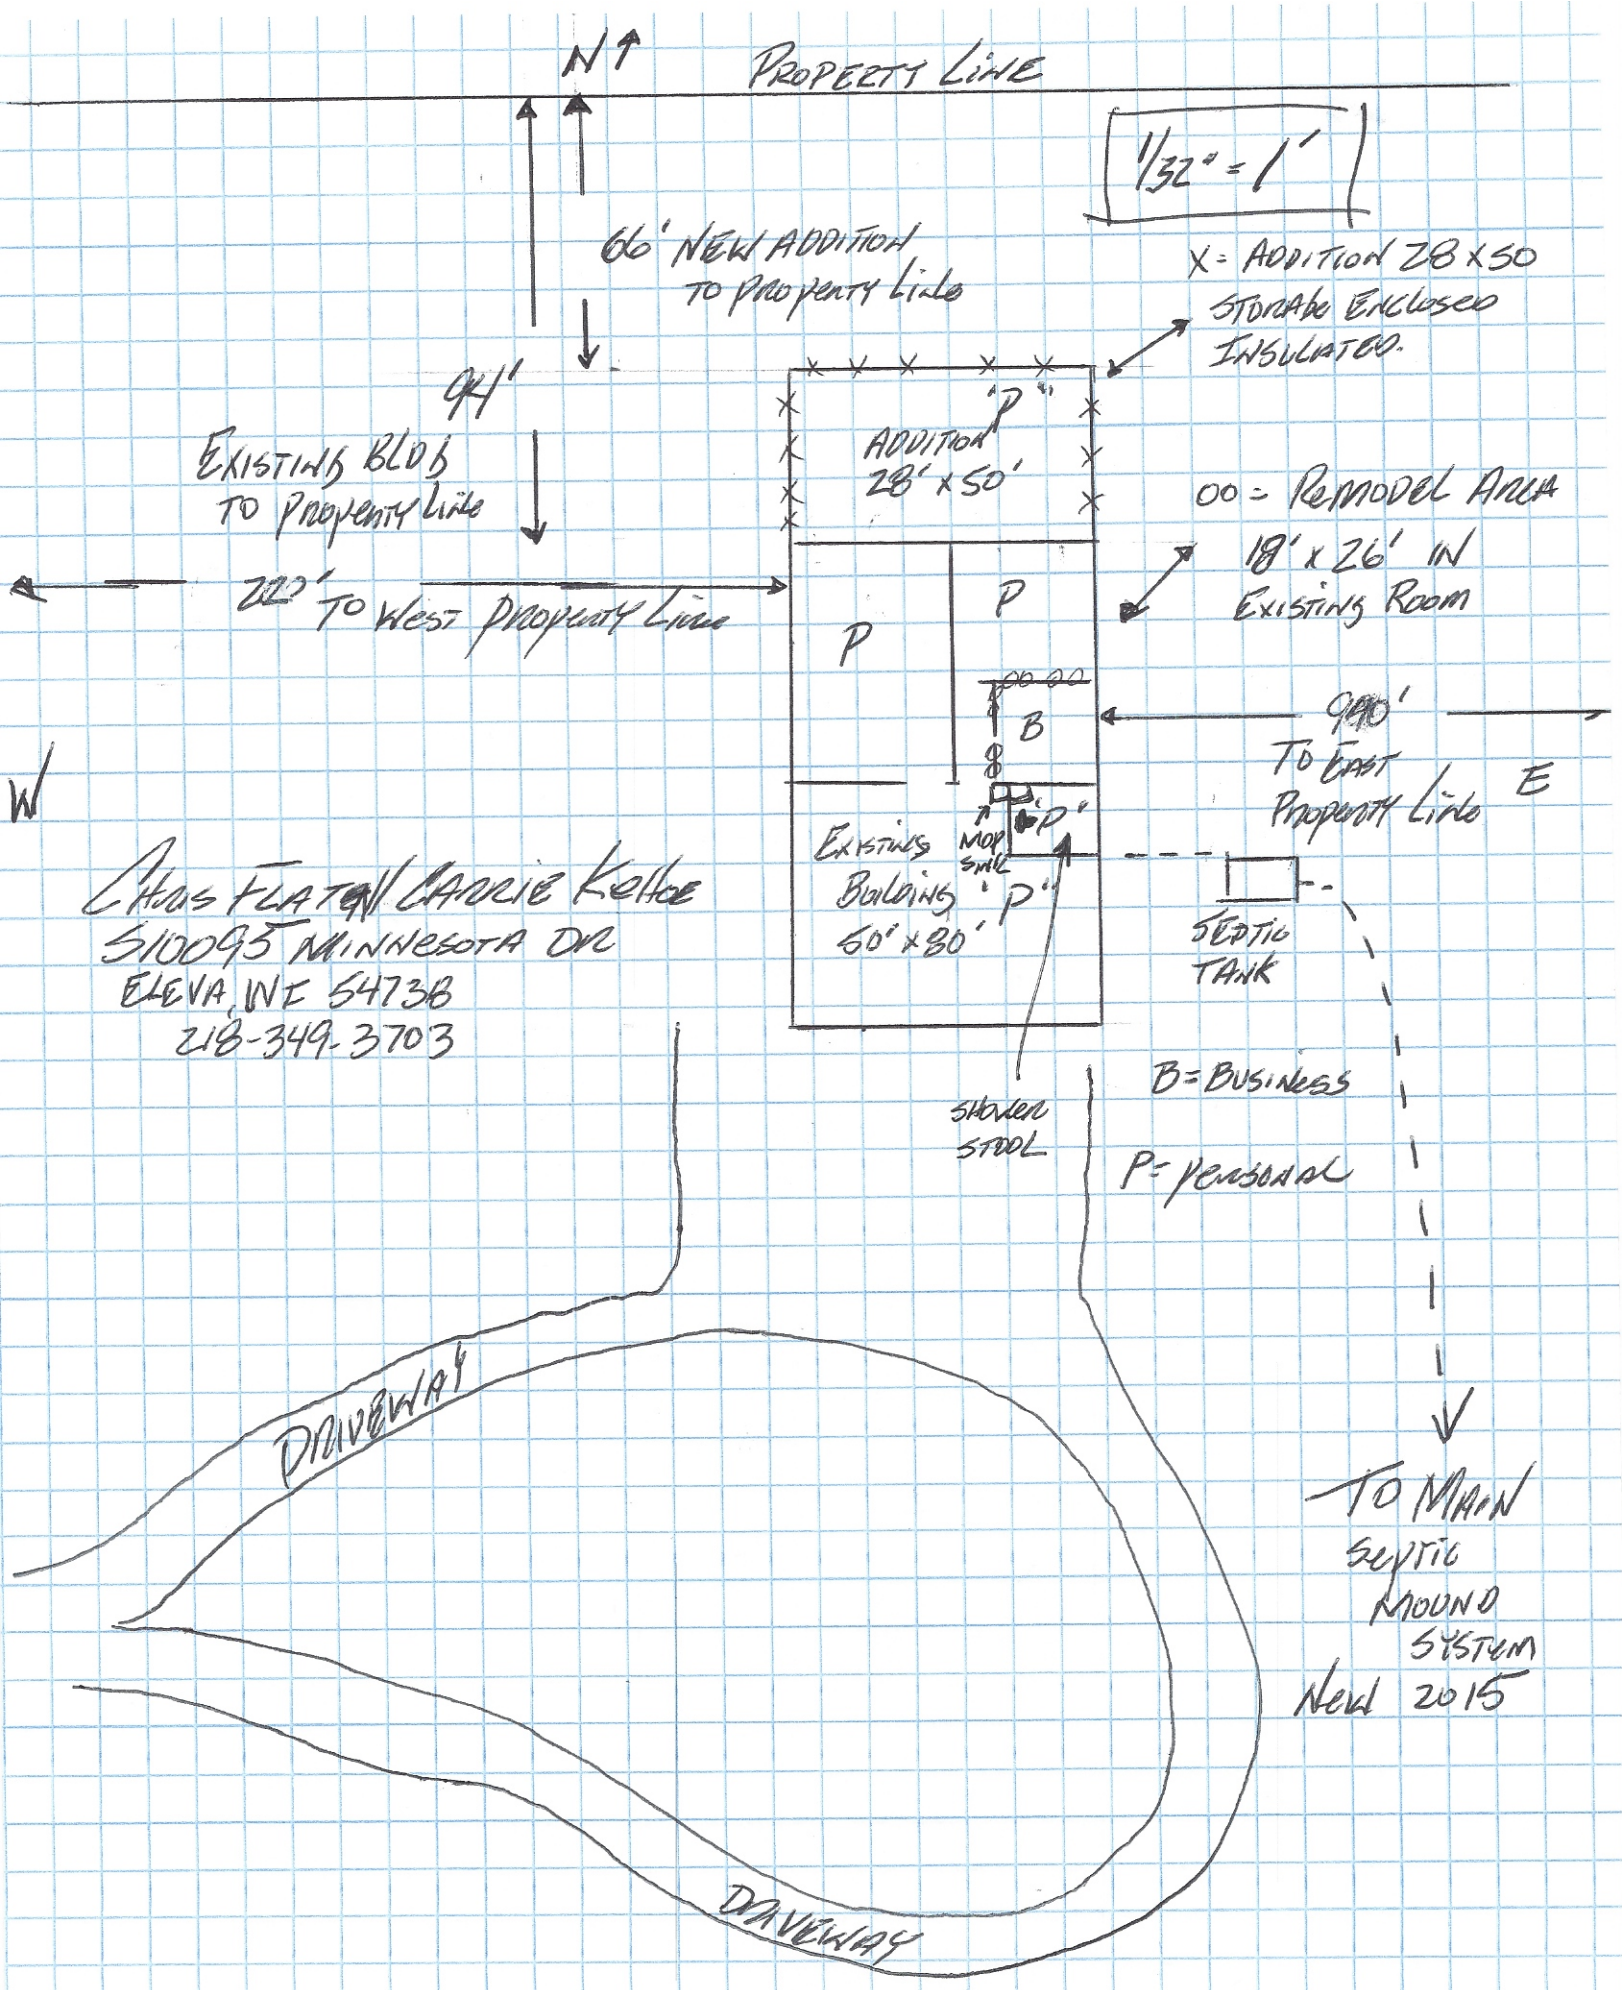 N
PROPERTY LINE
1/32" = 1'
66' NEW ADDITION
TO PROPERTY LINE
X = ADDITION 28 x 50
STORAGE ENCLOSED
INSULATED.
94'
EXISTING BLDG
TO PROPERTY LINE
"P"
ADDITION
28' x 50'
OO = REMODEL AREA
18' x 26' IN
EXISTING ROOM
TO WEST PROPERTY LINE
P
P
B
TO EAST
PROPERTY LINE
W
E
"P"
MOP
SINK
EXISTING
BUILDING "P"
50' x 80'
CHRIS FLATEN/CARRIE KEHOE
S10095 MINNESOTA DR
ELEVA, WI 54738
218-349-3703
SEPTIC
TANK
B = BUSINESS
SHOWER
STOOL
P = PERSONAL
DRIVEWAY
TO MAIN
SEPTIC
MOUND
SYSTEM
NEW 2015
DRIVEWAY